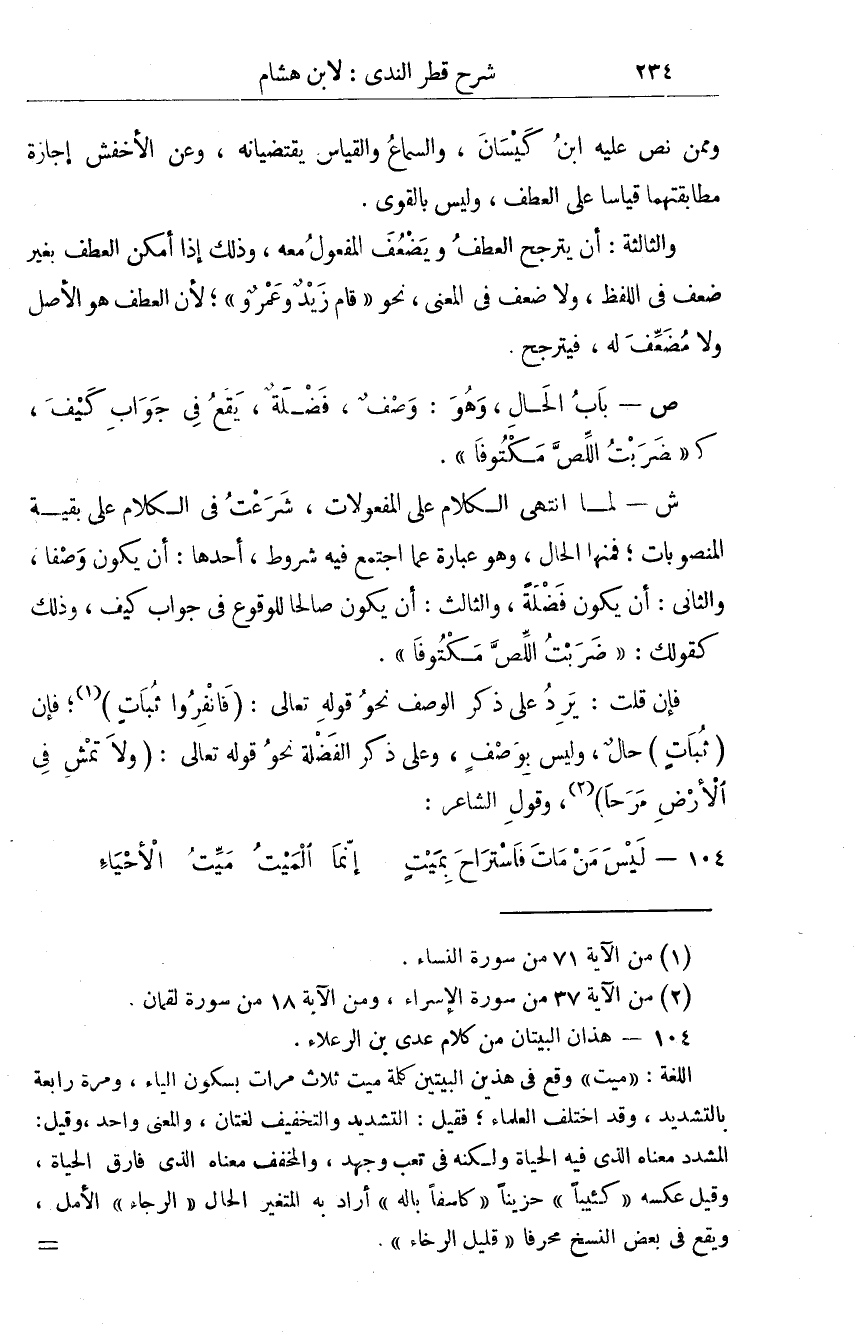 ٢٣٤ شرح قطر الندى : لابن هشام
وممن نص عليه ابنُ كَيْسَانَ ، والسماعُ والقياس يقتضيانه ، وعن الأخفش إجازة
مطابقتهما قياسا على العطف ، وليس بالقوى .
والثالثة : أن يترجح العطفُ ويَضْعُفَ المفعولُ معه ، وذلك إذا أمكن العطف بغير
ضعف فى اللفظ ، ولا ضعف فى المعنى ، نحو « قام زَيْدٌ وعَمْرٌو » ؛ لأن العطف هو الأصل
ولا مُضَعِّفَ له ، فيترجح .
ص — بَابُ الْحَالِ ، وَهُوَ : وَصْفٌ ، فَضْلَةٌ ، يَقَعُ فِي جَوَابِ كَيْفَ ،
كـ « ضَرَبْتُ اللِّصَّ مَكْتُوفًا » .
ش — لما انتهى الكلام على المفعولات ، شَرَعْتُ فى الكلام على بقية
المنصوبات ؛ فمنها الحال ، وهو عبارة عما اجتمع فيه شروط ، أحدها : أن يكون وَصْفا ،
والثانى : أن يكون فَضْلَةً ، والثالث : أن يكون صالحا للوقوع فى جواب كيف ، وذلك
كقولك : « ضَرَبْتُ اللِّصَّ مَكْتُوفًا » .
فإن قلت : يَرِدُ على ذكر الوصف نحوُ قولهِ تعالى : ( فَانْفِرُوا ثُبَاتٍ )(١)؛ فإن
( ثُبَاتٍ ) حالٌ ، وليس بِوَصْفٍ ، وعلى ذكر الفَضْلة نحوُ قوله تعالى : ( ولاَ تَمْشِ فِي
الْأَرْضِ مَرَحًا)(٢)، وقولِ الشاعر :
١٠٤ — لَيْسَ مَنْ مَاتَ فَاسْتَرَاحَ بِمَيْتٍ إنَّمَا الْمَيْتُ مَيِّتُ الْأَحْيَاءِ
(١) من الآية ٧١ من سورة النساء .
(٢) من الآية ٣٧ من سورة الإسراء ، ومن الآية ١٨ من سورة لقمان .
١٠٤ — هذان البيتان من كلام عدى بن الرعلاء .
اللغة : «ميت» وقع فى هذين البيتين كلمة ميت ثلاث مرات بسكون الياء ، ومرة رابعة
بالتشديد ، وقد اختلف العلماء ؛ فقيل : التشديد والتخفيف لغتان ، والمعنى واحد ،وقيل:
المشدد معناه الذى فيه الحياة ولكنه فى تعب وجهد ، والمخفف معناه الذى فارق الحياة ،
وقيل عكسه « كئيباً » حزيناً « كاسفاً باله » أراد به المتغير الحال « الرجاء » الأمل ،
ويقع فى بعض النسخ محرفا « قليل الرخاء » . =